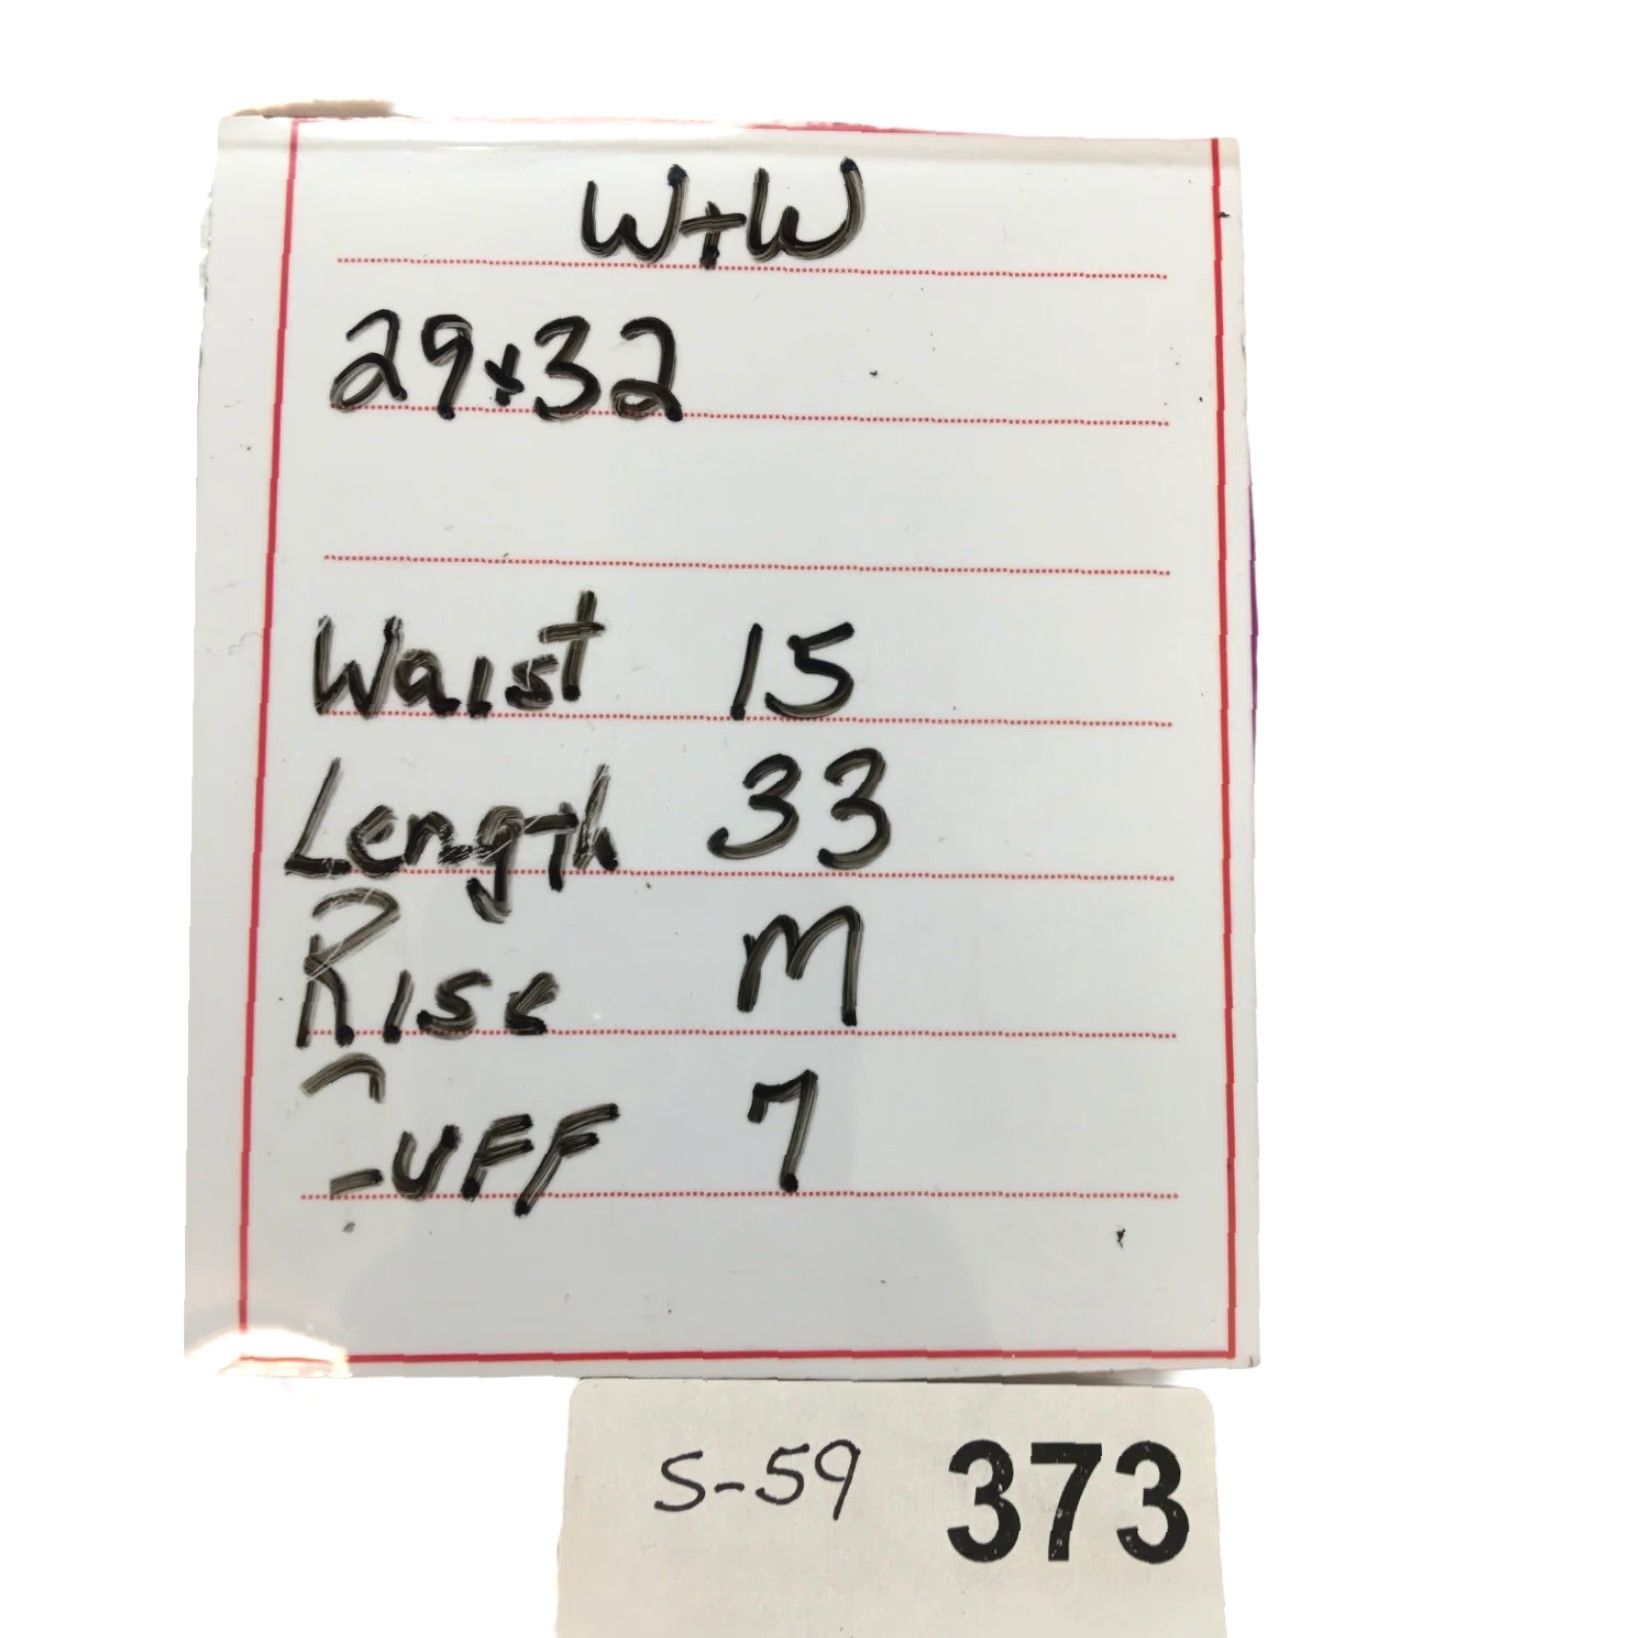 W+W
29x32
Waist 15
Length 33
Rise M
Cuff 7
S-59 373